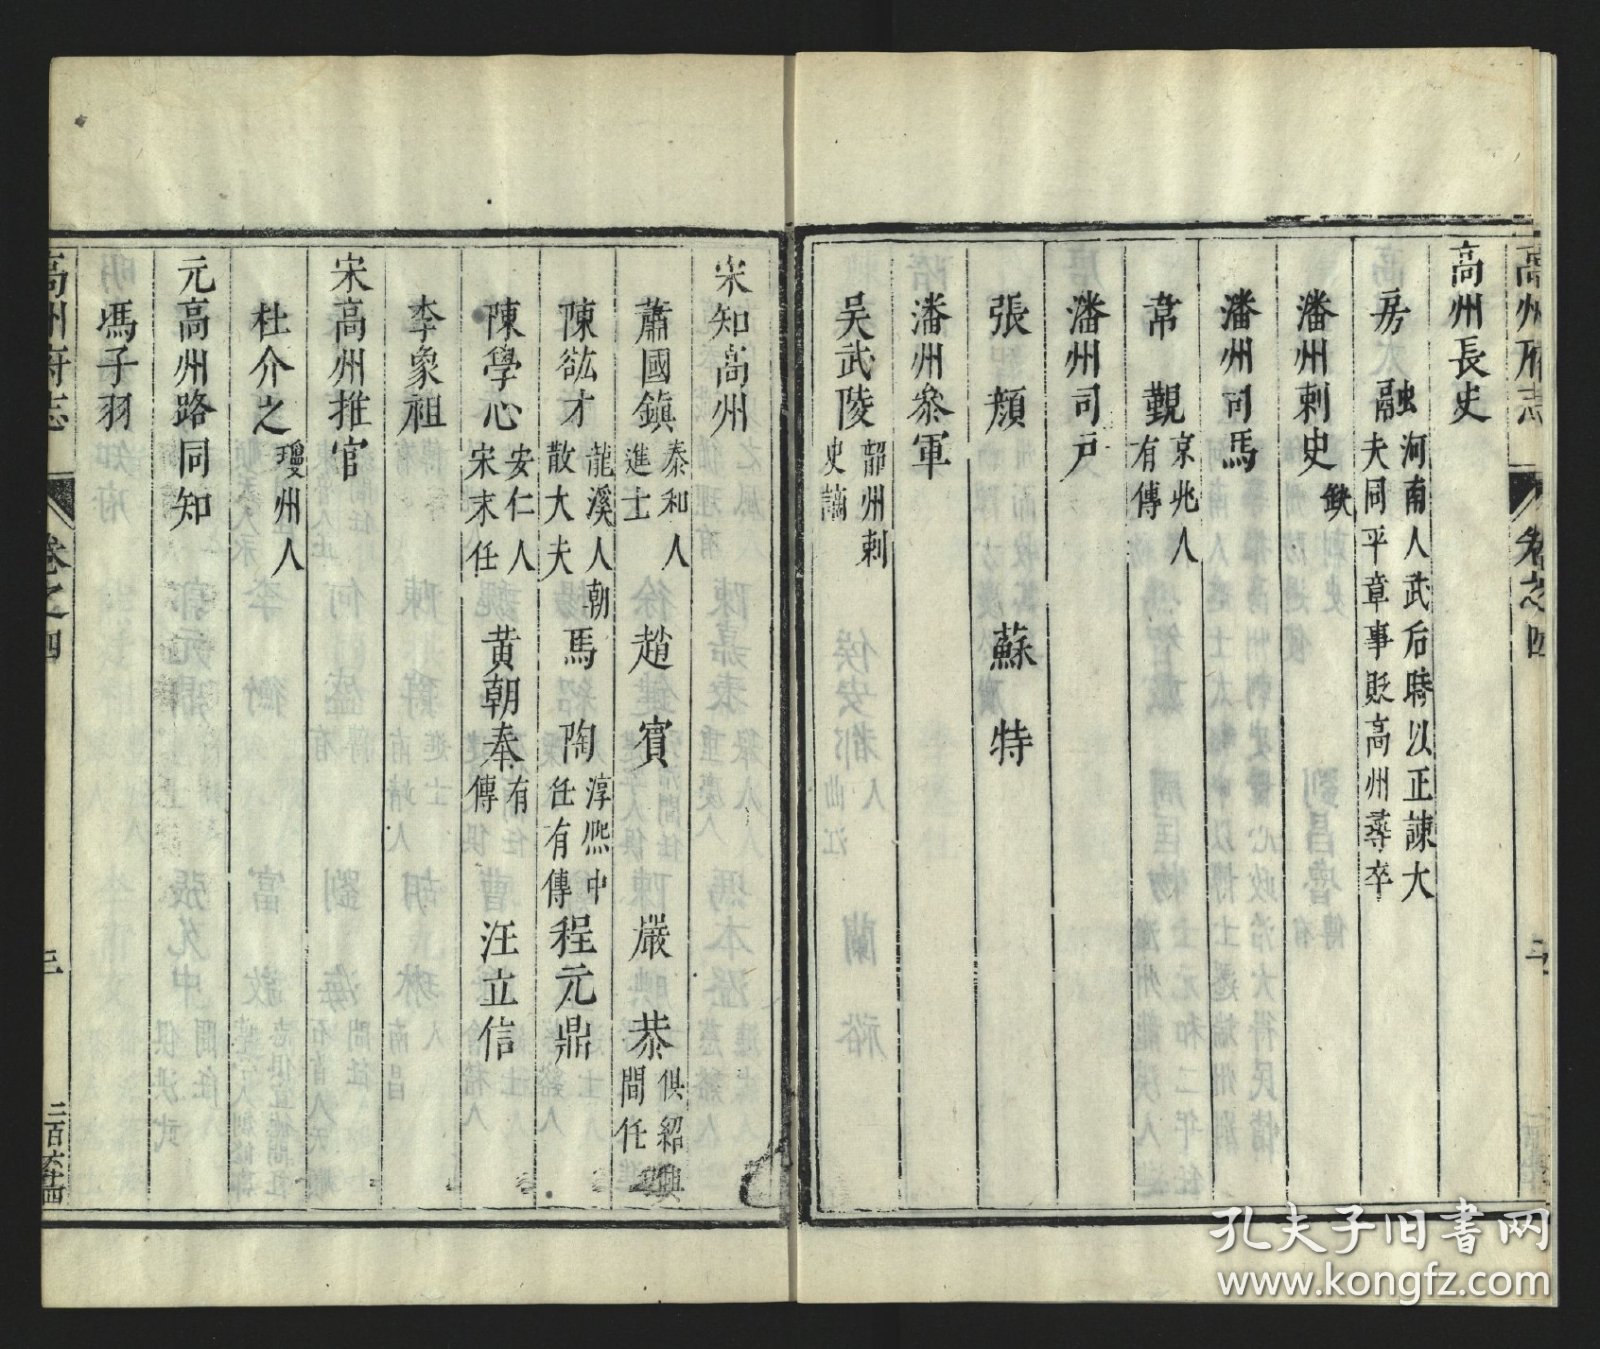 高州府志 卷之四
高州長史
房融 河南人武后時以正諫大
夫同平章事貶高州尋卒
潘州刺史 缺
潘州司馬
韋覲 京兆人
有傳
潘州司戶
張顏 蘇特
潘州叅軍
吳武陵 韶州刺
史謫
宋知高州
蕭國鎮 泰和人
進士 趙賓 嚴恭 俱紹興
間任
陳鈜才 龍溪人朝
散大夫 馬陶 淳熙中
任有傳 程元鼎
陳學心 安仁人
宋末任 黃朝奉 有
傳 汪立信
李象祖
宋高州推官
杜介之 瓊州人
元高州路同知
馮子羽
高州府志 卷之四 三 二百六十四
孔夫子旧书网
www.kongfz.com